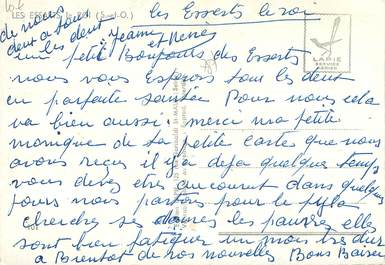 les Essarts le roi
LES ESSARTS-LE-ROI (S.-&-O.)
de nous
deux a tous
les deux
Jeanne
et
un petit Bonjour des Essarts
nous vous Esperons tous les deux
en parfaite santée Pour nous cela
va bien aussi. merci ma petite
monique de ta petite cartes que nous
avons reçus il y a deja quelque temps
vous devez etre au courent dans quelques
jours nous partons pour le pyla
chercher ses les pauvres elles
sont bien fatiguer un mois les dur
a Bientot de vos nouvelles Bons Baisers
LAPIE
SERVICE